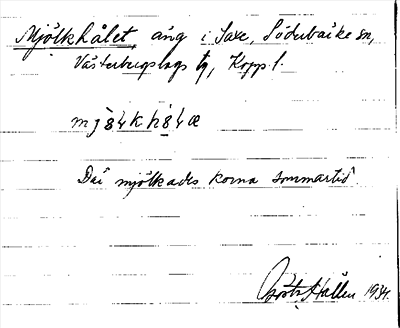 Mjölkhålet, äng i Saxe, Söderbärke sn,
Västerbergslags tg, Kopp. l.
Där mjölkades korna sommartid.
Hållén 1934.